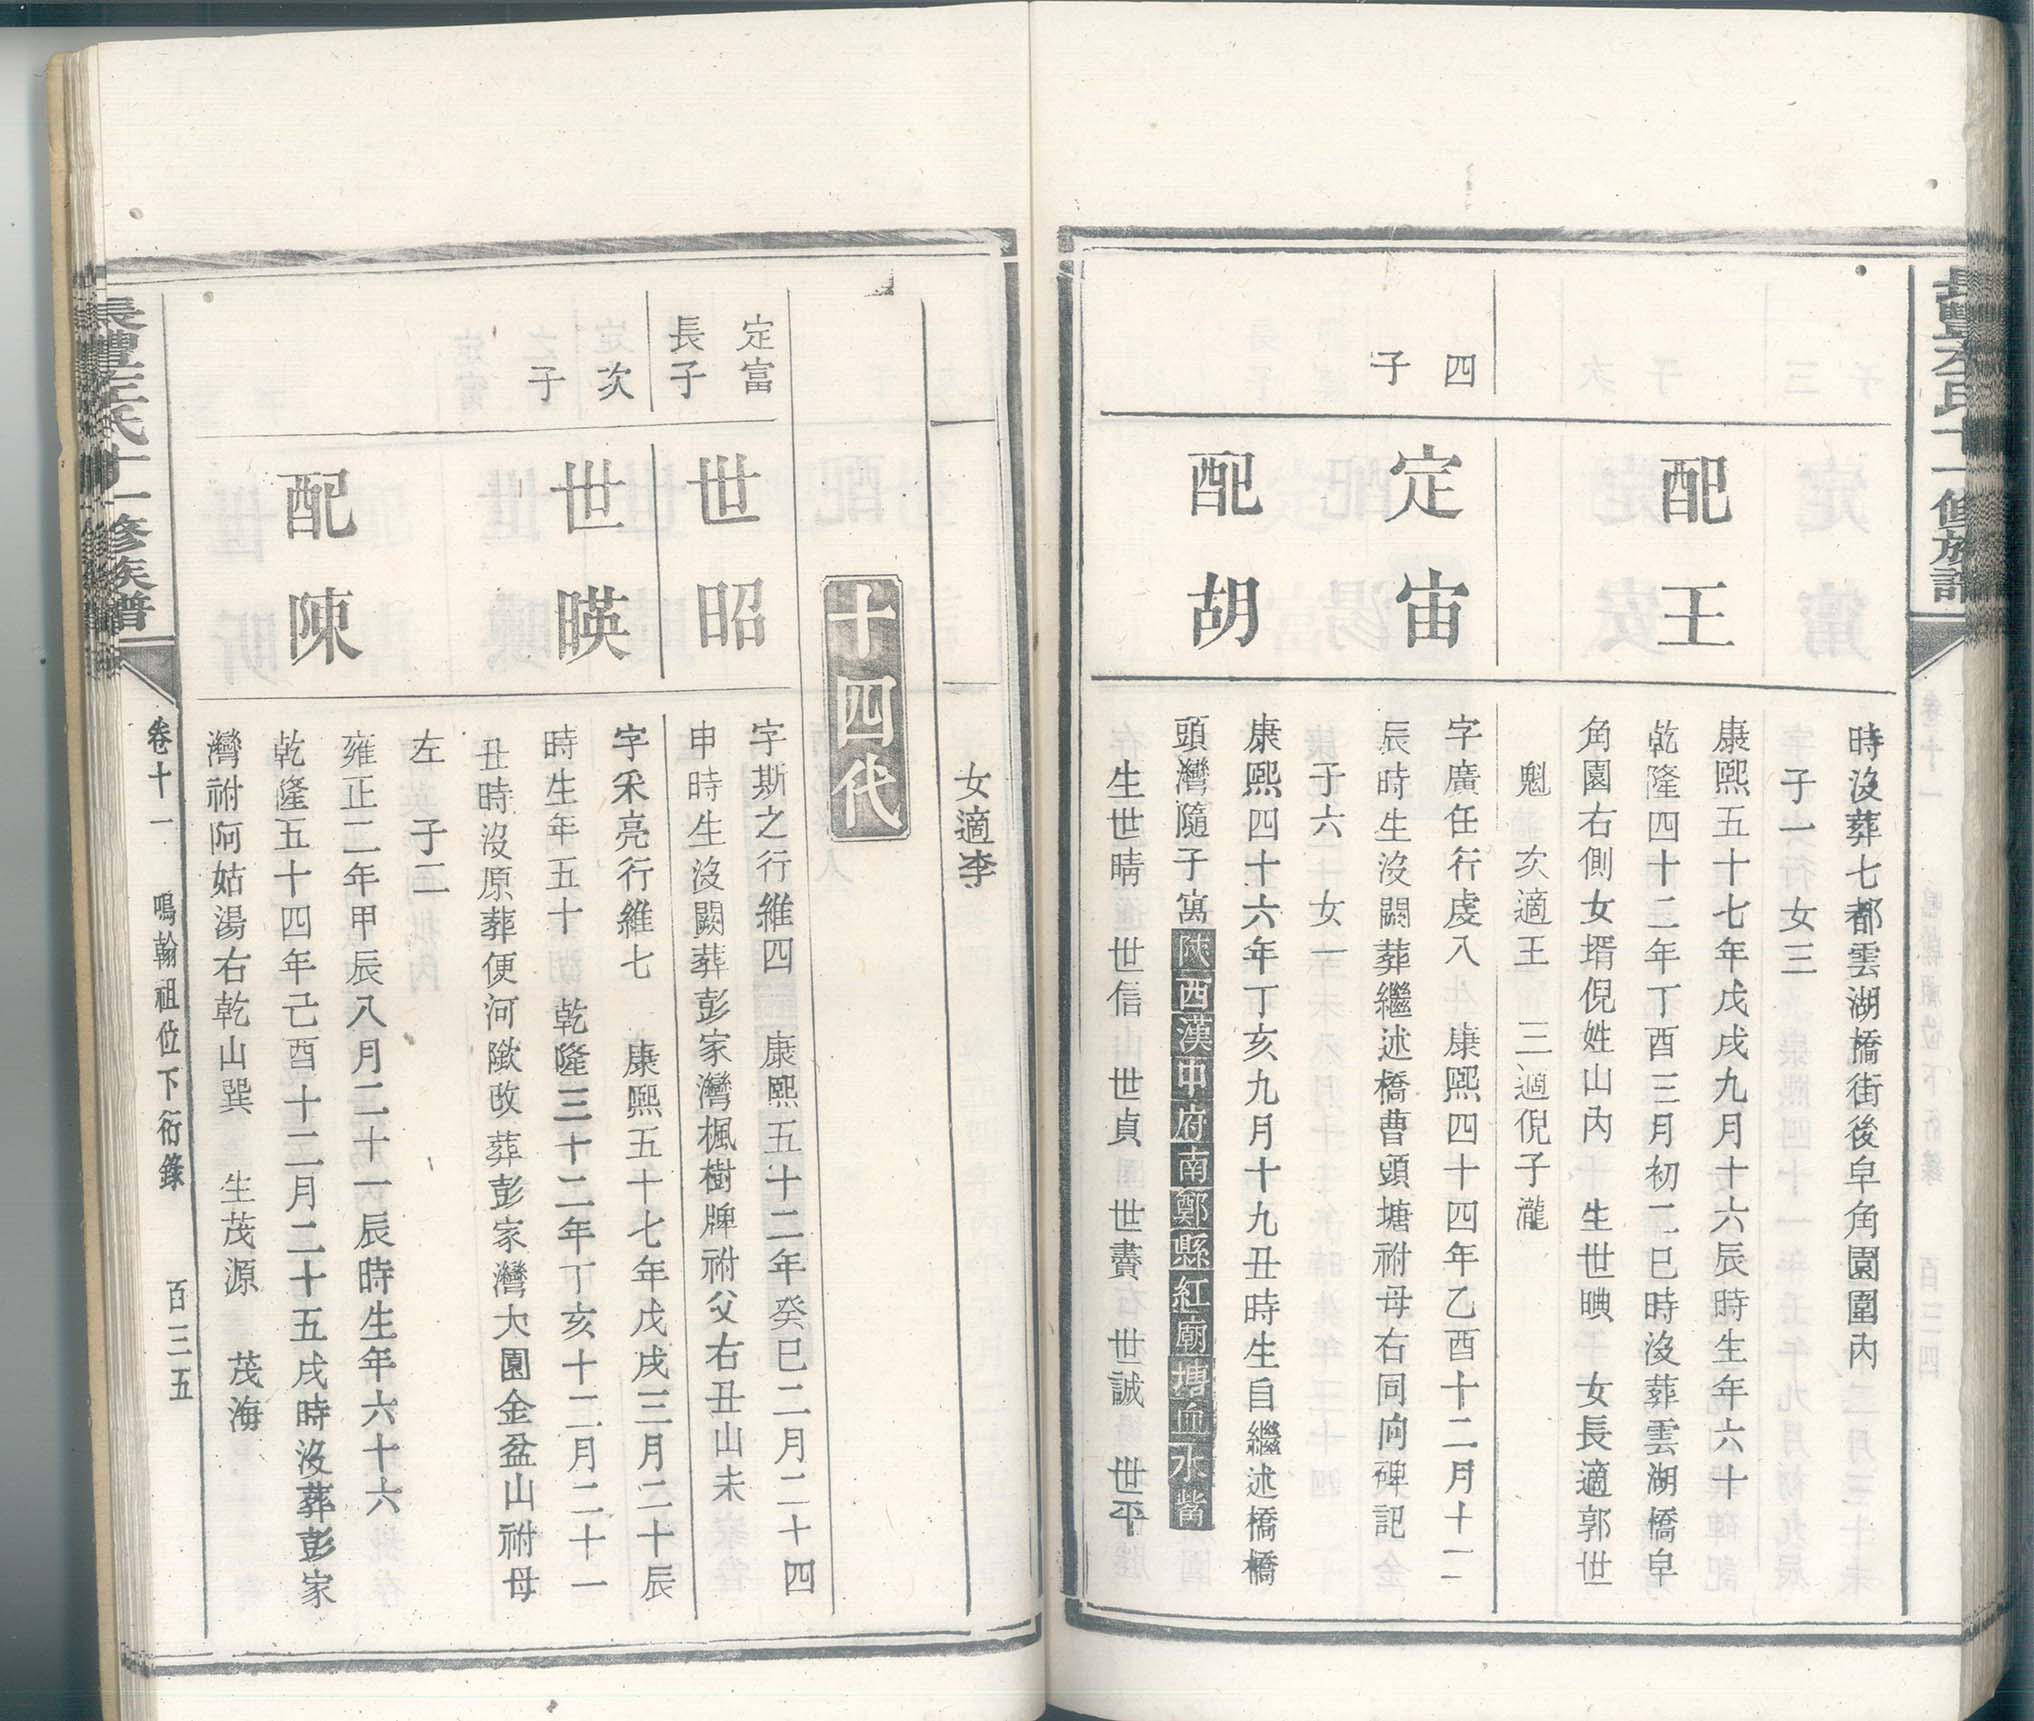 時沒葬七都雲湖橋街後皁角園圍內
子一 女三
配王
康熙五十七年戊戌九月十六辰時生年六十
乾隆四十二年丁酉三月初二巳時沒葬雲湖橋皁
角園右側女壻倪姓山內 生世晪 女長適郭世
魁 次適王 三適倪子瀧
四
子
定宙
字廣任行虔八 康熙四十四年乙酉十二月十一
辰時生沒闕葬繼述橋曹頭塘祔母右同向碑記
子六 女一
配胡
康熙四十六年丁亥九月十九丑時生自繼述橋橋
頭灣隨子寓陝西漢中府南鄭縣紅廟塘血水
生世晴 世信 世貞 世賚 世誠 世平
女適李
十四代
定富
長子
世昭
字斯之行維四 康熙五十二年癸巳二月二十四
申時生沒闕葬彭家灣楓樹牌祔父右丑山未
定次
之子
世暎
字采亮行維七 康熙五十七年戊戌三月二十辰
時生年五十 乾隆三十二年丁亥十二月二十一
丑時沒原葬便河墘改葬彭家灣大園金盆山祔母
左 子二
配陳
雍正二年甲辰八月二十一辰時生年六十六
乾隆五十四年己酉十二月二十五戌時沒葬彭家
灣祔阿姑湯右乾山巽 生茂源 茂海
左氏十一修族譜
卷十一 鳴翰祖位下衍錄 百三五